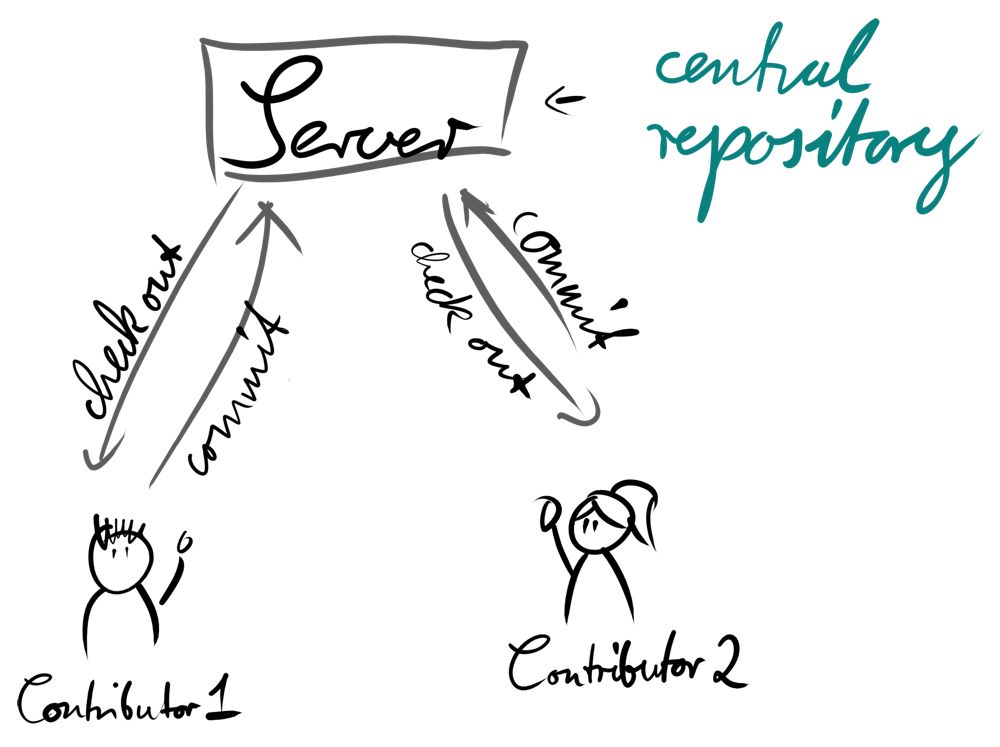 Server
central
repository
check out
commit
check out
commit
Contributor 1
Contributor 2